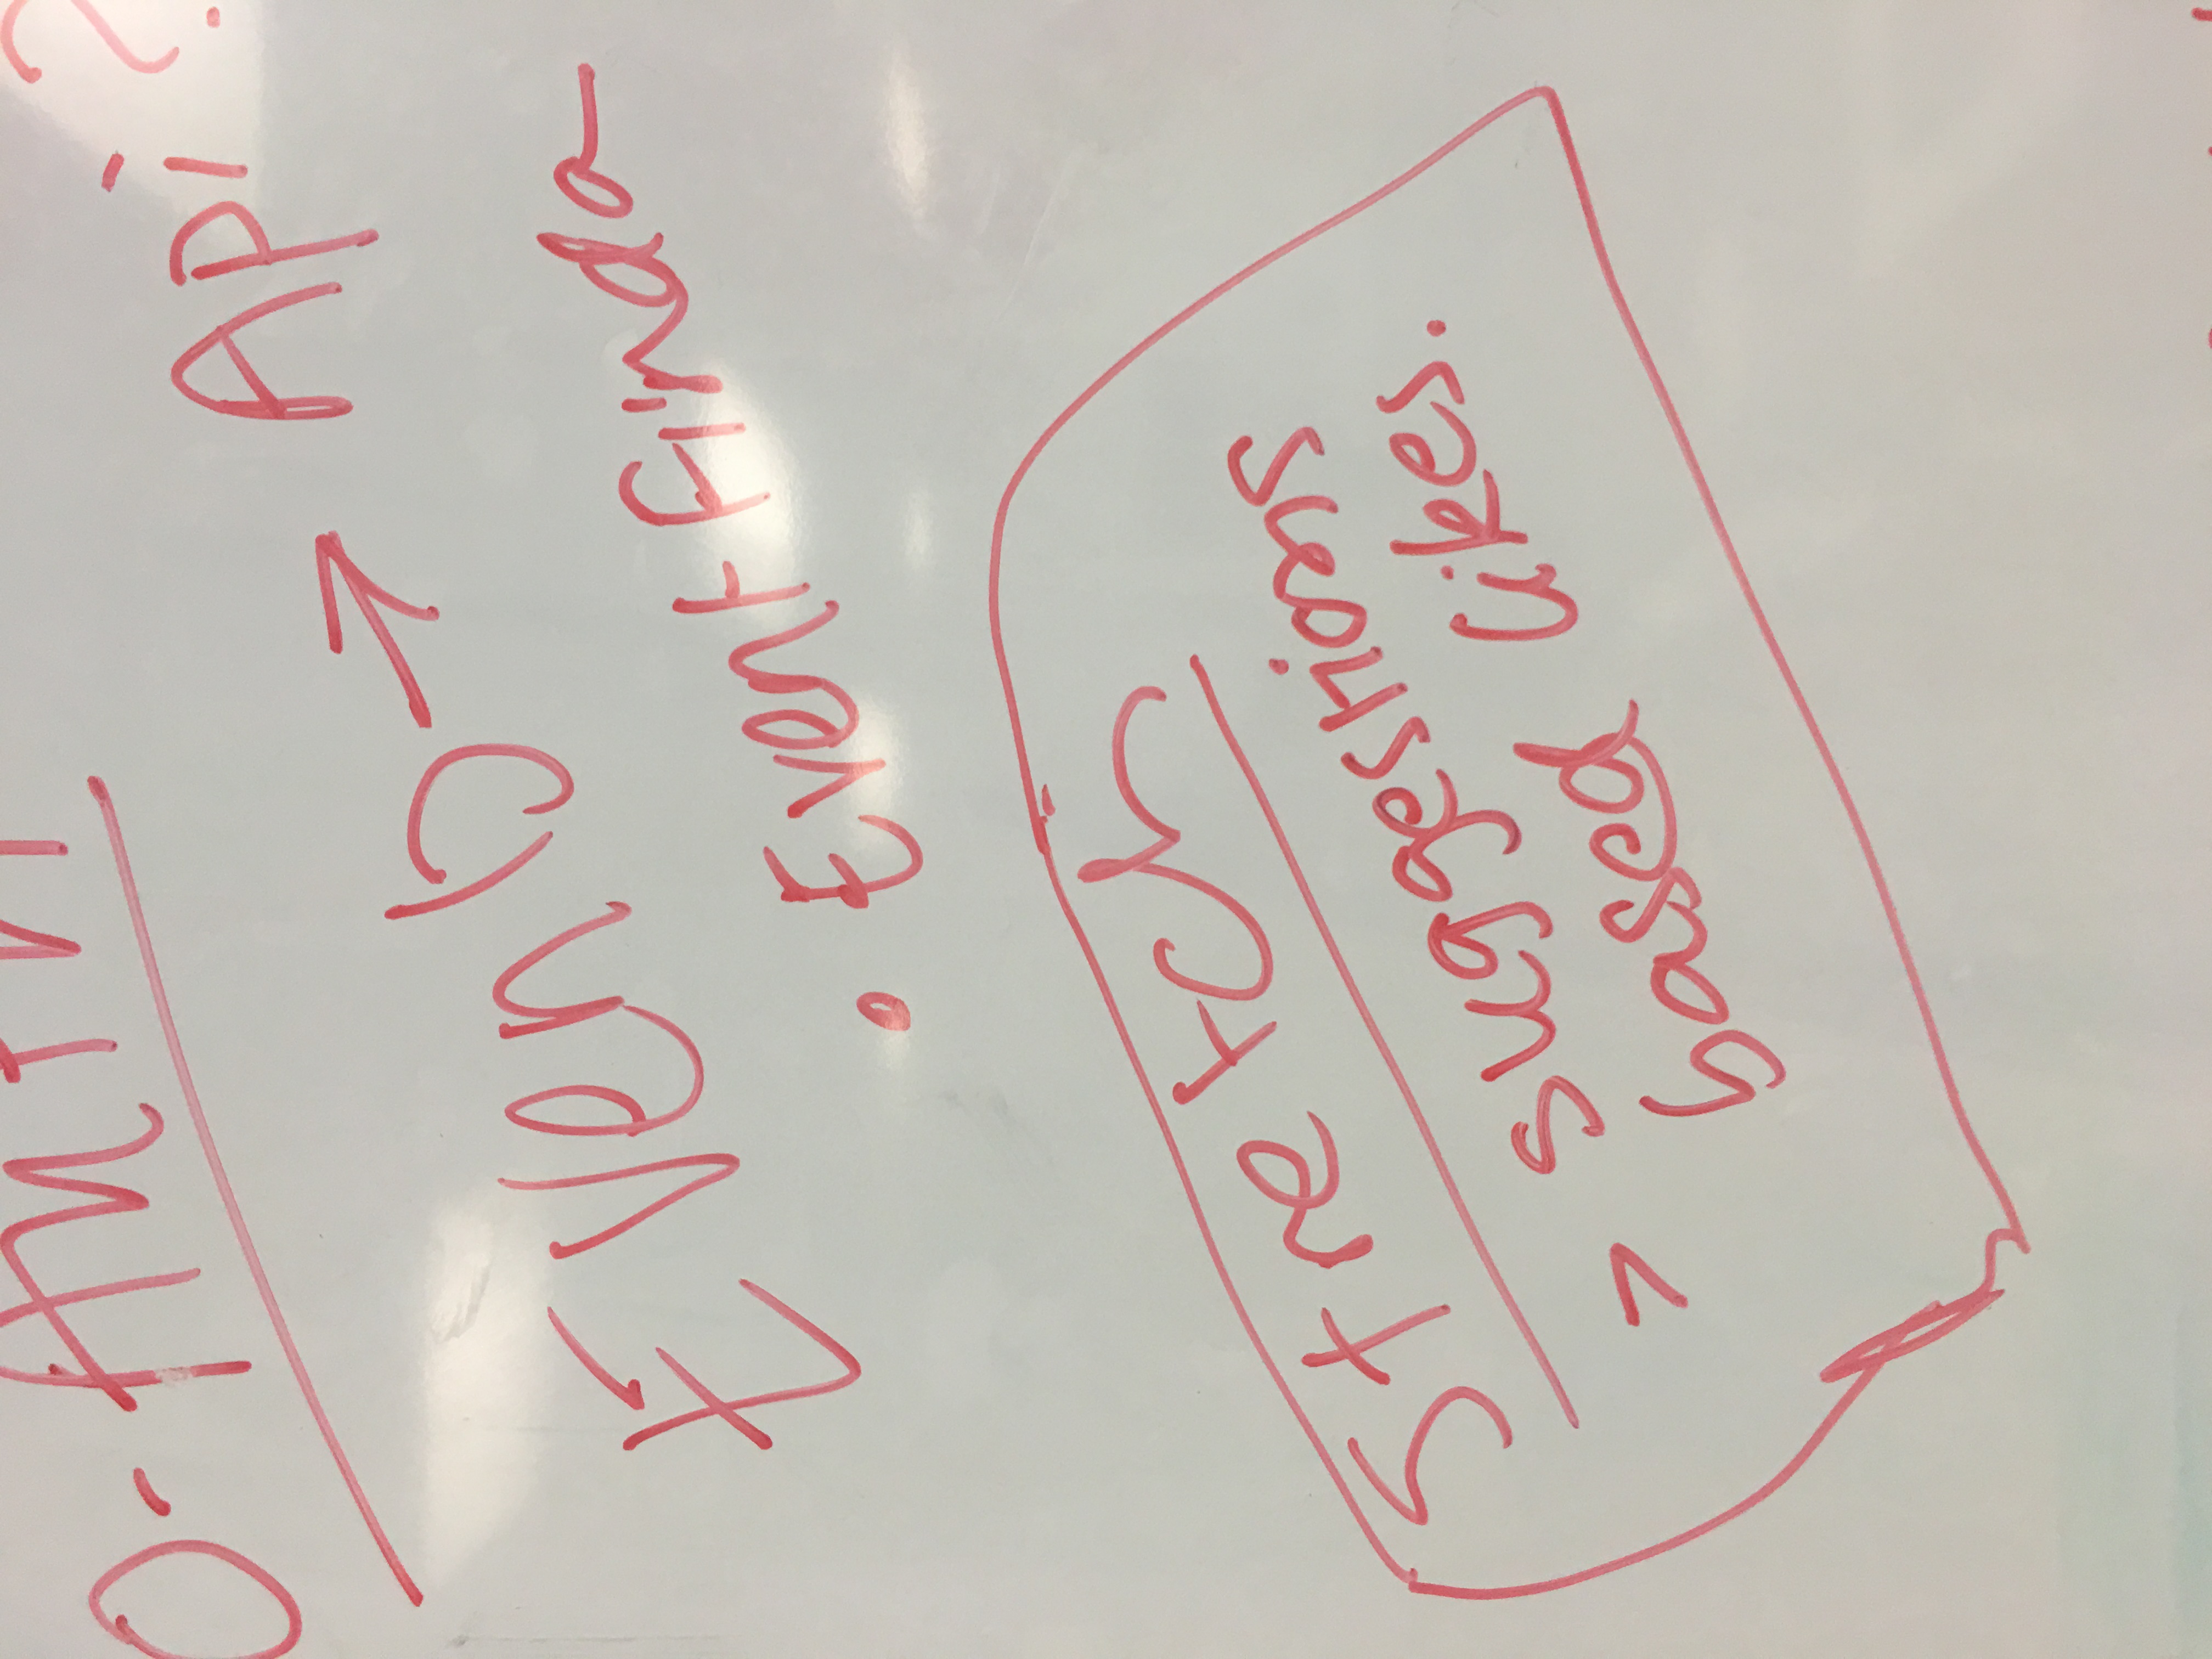 O-Auth
Events → Api?
• EventFinda
Stretch
> suggestions
based likes.